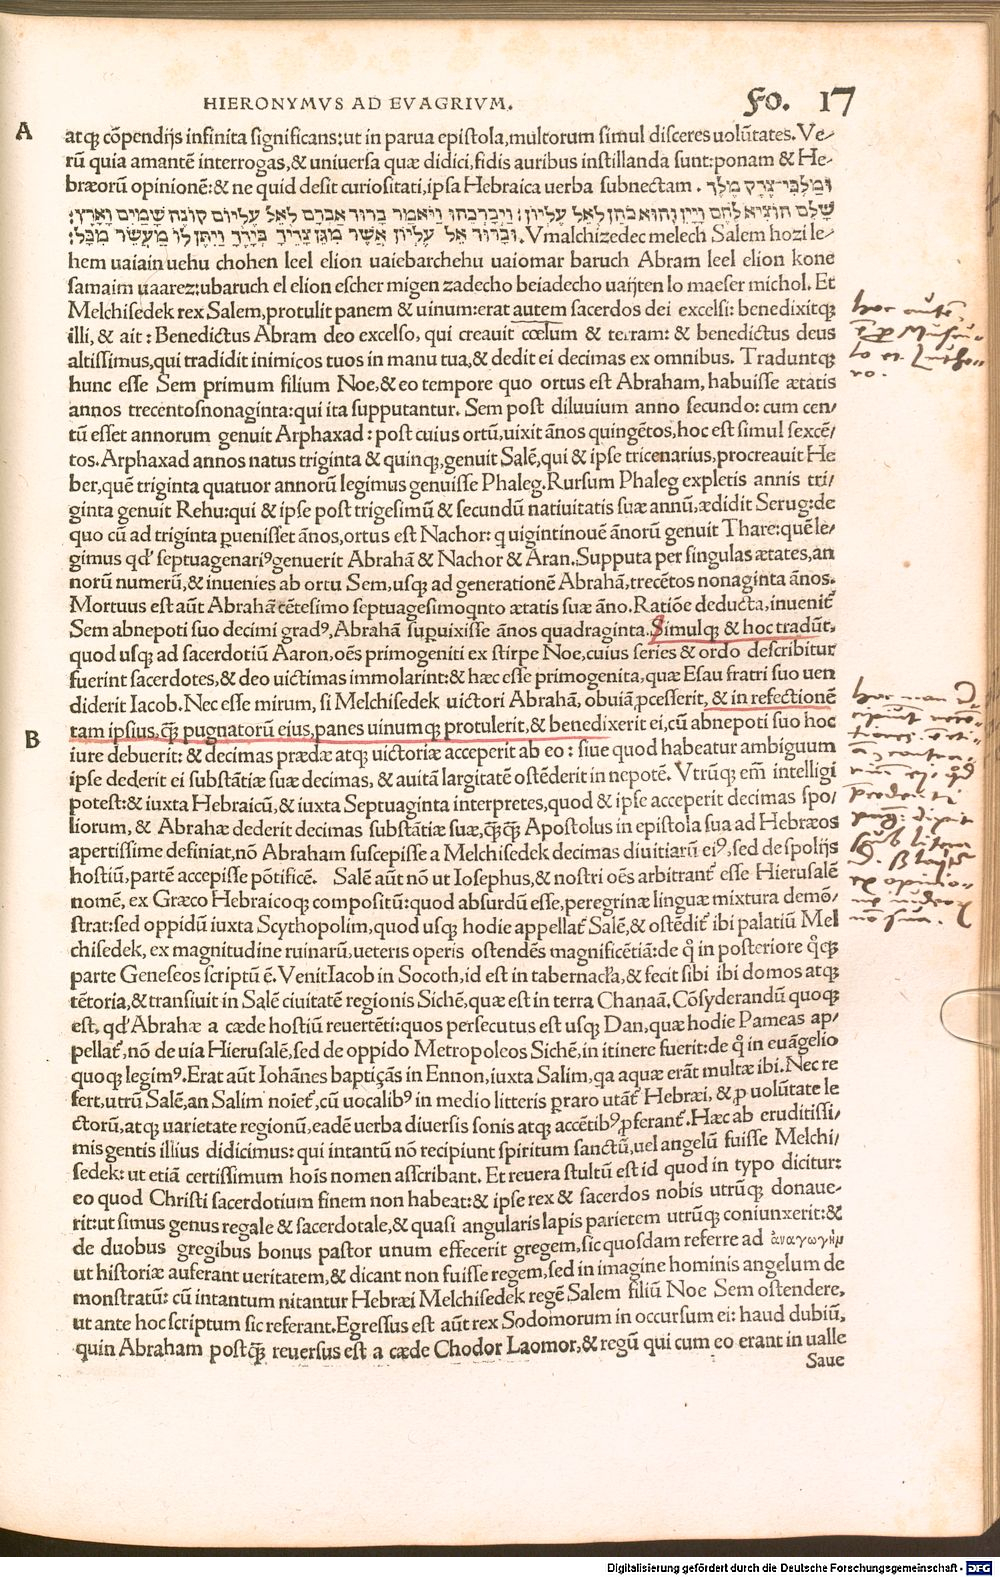 HIERONYMVS AD EVAGRIVM.
Fo. 17
A
atq; cōpendijs infinita significans: ut in parua epistola, multorum simul disceres uolūtates. Ve⸗
rū quia amantē interrogas, & uniuersa quæ didici, fidis auribus instillanda sunt: ponam & He⸗
bræorū opinionē: & ne quid desit curiositati, ipsa Hebraica uerba subnectam. וּמַלְכִּי־צֶדֶק מֶלֶךְ
שָׁלֵם הוֹצִיא לֶחֶם וָיַיִן וְהוּא כֹהֵן לְאֵל עֶלְיוֹן׃ וַיְבָרְכֵהוּ וַיֹּאמַר בָּרוּךְ אַבְרָם לְאֵל עֶלְיוֹם קוֹנֶה שָׁמַיִם וָאָרֶץ׃
וּבָרוּךְ אֵל עֶלְיוֹן אֲשֶׁר מִגֵּן צָרֶיךָ בְּיָדֶךָ וַיִּתֶּן לוֹ מַעֲשֵׂר מִכֹּל׃ Vmalchizedec melech Salem hozi le⸗
hem uaiain uehu chohen leel elion uaiebarchehu uaiomar baruch Abram leel elion kone
samaim uaarez: ubaruch el elion escher migen zadecho beiadecho uaijten lo maeser michol. Et
Melchisedek rex Salem, protulit panem & uinum: erat autem sacerdos dei excelsi: benedixitq;
illi, & ait: Benedictus Abram deo excelso, qui creauit cœlum & terram: & benedictus deus
altissimus, qui tradidit inimicos tuos in manu tua, & dedit ei decimas ex omnibus. Traduntq;
hunc esse Sem primum filium Noe, & eo tempore quo ortus est Abraham, habuisse ætatis
annos trecentosnonaginta: qui ita supputantur. Sem post diluuium anno secundo: cum cen⸗
tū esset annorum genuit Arphaxad: post cuius ortū, uixit ānos quingētos, hoc est simul sexcē/
tos. Arphaxad annos natus triginta & quinq;, genuit Salē, qui & ipse tricenarius, procreauit He
ber, quē triginta quatuor annorū legimus genuisse Phaleg. Rursum Phaleg expletis annis tri/
ginta genuit Rehu: qui & ipse post trigesimū & secundū natiuitatis suæ annū, ædidit Serug: de
quo cū ad triginta ꝑuenisset ānos, ortus est Nachor: q uigintinouē ānorū genuit Thare: quē le/
gimus qd' septuagenariꝰ genuerit Abrahā & Nachor & Aran. Supputa per singulas ætates, an
norū numerū, & inuenies ab ortu Sem, usq; ad generationē Abrahā, trecētos nonaginta ānos.
Mortuus est aūt Abrahā cētesimo septuagesimoqnto ætatis suæ āno. Ratiōe deducta, inuenit̃
Sem abnepoti suo decimi gradꝰ, Abrahā suꝑuixisse ānos quadraginta. Simulq; & hoc tradūt,
quod usq; ad sacerdotiū Aaron, oēs primogeniti ex stirpe Noe, cuius series & ordo describitur
fuerint sacerdotes, & deo uictimas immolarint: & hæc esse primogenita, quæ Esau fratri suo uen
diderit Iacob. Nec esse mirum, si Melchisedek uictori Abrahā, obuiā ꝓcesserit, & in refectionē
B
tam ipsius, q̄; pugnatorū eius, panes uinumq; protulerit, & benedixerit ei, cū abnepoti suo hoc
iure debuerit: & decimas prædæ atq; uictoriæ acceperit ab eo: siue quod habeatur ambiguum
ipse dederit ei substātiæ suæ decimas, & auitā largitatē ostēderit in nepotē. Vtrūq; em̄ intelligi
potest: & iuxta Hebraicū, & iuxta Septuaginta interpretes, quod & ipse acceperit decimas spo/
liorum, & Abrahæ dederit decimas substātiæ suæ, q̄;q̄; Apostolus in epistola sua ad Hebræos
apertissime definiat, nō Abraham suscepisse a Melchisedek decimas diuitiarū eiꝰ, sed de spolijs
hostiū, partē accepisse pōtificē. Salē aūt nō ut Iosephus, & nostri oēs arbitrant̃ esse Hierusalē
nomē, ex Græco Hebraicoq; compositū: quod absurdū esse, peregrinæ linguæ mixtura demō/
strat: sed oppidū iuxta Scythopolim, quod usq; hodie appellat̃ Salē, & ostēdit̃ ibi palatiū Mel
chisedek, ex magnitudine ruinarū, ueteris operis ostendēs magnificētiā: de q̊ in posteriore q̊q;
parte Geneseos scriptū ē. Venit Iacob in Socoth, id est in tabernacl'a, & fecit sibi ibi domos atq;
tētoria, & transiuit in Salē ciuitatē regionis Sichē, quæ est in terra Chanaā. Cōsyderandū quoq;
est, qd' Abrahæ a cæde hostiū reuertēti: quos persecutus est usq; Dan, quæ hodie Pameas ap/
pellat̃, nō de uia Hierusalē, sed de oppido Metropoleos Sichē, in itinere fuerit: de q̊ in euāgelio
quoq; legimꝰ. Erat aūt Iohānes baptiçās in Ennon, iuxta Salim, qa aquæ erāt multæ ibi. Nec re
fert, utrū Salē, an Salim noiet̃, cū uocalibꝰ in medio litteris ꝑraro utāt̃ Hebræi, & ꝓ uolūtate le
ctorū, atq; uarietate regionū, eadē uerba diuersis sonis atq; accētibꝰ ꝓferant̃. Hæc ab eruditissi/
mis gentis illius didicimus: qui intantū nō recipiunt spiritum sanctū, uel angelū fuisse Melchi/
sedek: ut etiā certissimum hois nomen ascribant. Et reuera stultū est id quod in typo dicitur:
eo quod Christi sacerdotium finem non habeat: & ipse rex & sacerdos nobis utrūq; donaue⸗
rit: ut simus genus regale & sacerdotale, & quasi angularis lapis parietem utrūq; coniunxerit: &
de duobus gregibus bonus pastor unum effecerit gregem, sic quosdam referre ad ἀναγωγὴμ
ut historiæ auferant ueritatem, & dicant non fuisse regem, sed in imagine hominis angelum de
monstratū: cū intantum nitantur Hebræi Melchisedek regē Salem filiū Noe Sem ostendere,
ut ante hoc scriptum sic referant. Egressus est aūt rex Sodomorum in occursum ei: haud dubiū,
quin Abraham postq̄; reuersus est a cæde Chodor Laomor, & regū qui cum eo erant in ualle
Saue
hoc autē
Luthe⸗
ro.
sub litera
ex opinio⸗
Digitalisierung gefördert durch die Deutsche Forschungsgemeinschaft - DFG